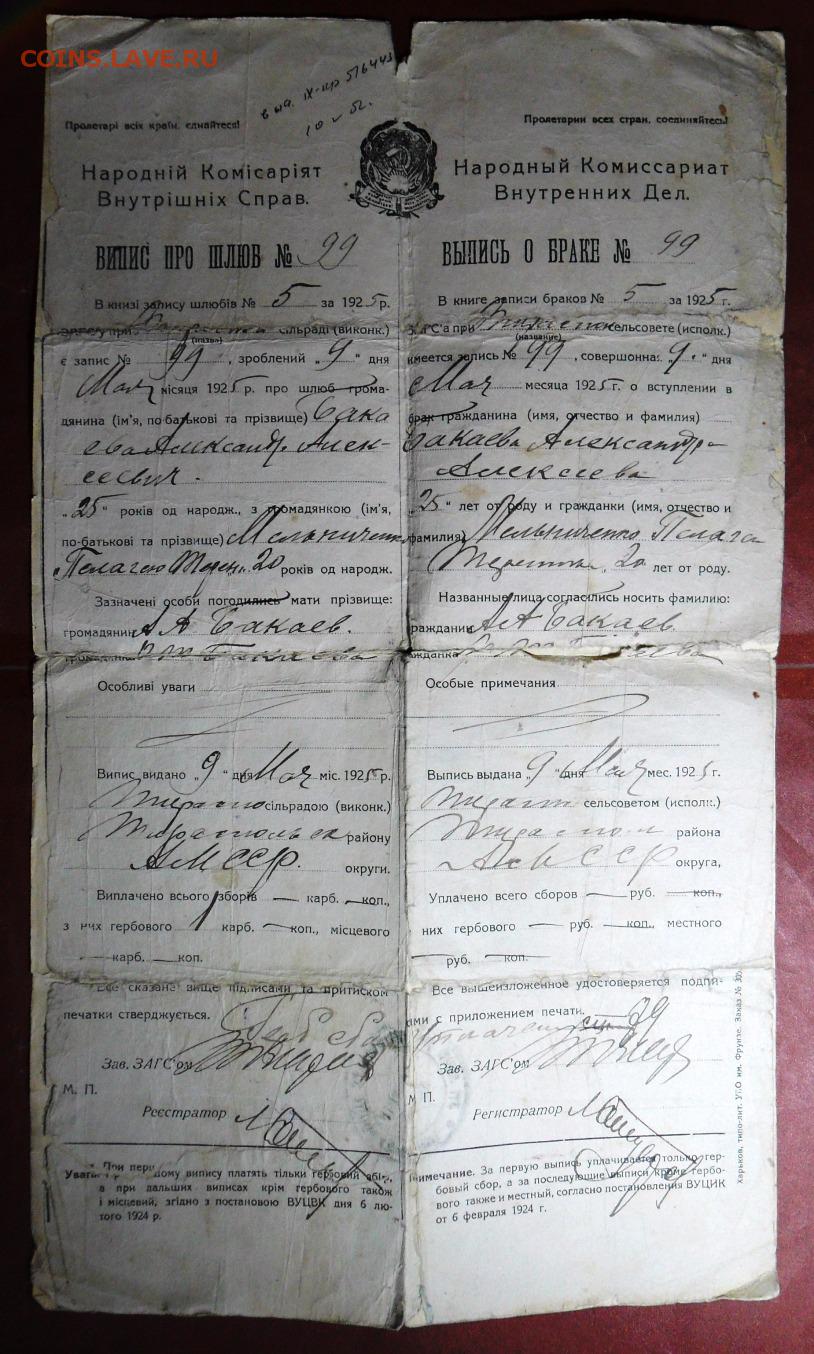 COINS.LAVE.RU
Пролетарі всіх країн, єднайтеся!
Народній Комісаріят
Внутрішніх Справ.
ВИПИС ПРО ШЛЮБ № 99
В книзі запису шлюбів № 5 за 1925 р.
при сільраді (виконк.)
(назва)
є запис № 99, зроблений „9“ дня
Мая місяця 1925 р. про шлюб грома-
дянина (ім'я, по-батькові та прізвище) Бака
ева Александр Алек-
сеевич.
„25“ років од народж., з громадянкою (ім'я,
по-батькові та прізвище) Мельниченко
Пелагею 20 років од народж.
Зазначені особи погодились мати прізвище:
громадянин А А Бакаев.
громадянка Бакаева
Особливі уваги
Випис видано „9“ дня Мая міс. 1925 р.
сільрадою (виконк.)
Тираспольск району
АМССР. округи.
Виплачено всього зборів — карб. — коп.,
з них гербового карб. — коп., місцевого
— карб. — коп.
Все сказане вище підписами та притиском
печатки стверджується.
Зав. ЗАГС'ом
М. П.
Реєстратор
Увага. При першому випису платять тільки гербовий збір,
а при дальших виписах крім гербового також
і місцевий, згідно з постановою ВУЦВК дня 6 лю-
того 1924 р.
Пролетарии всех стран, соединяйтесь!
Народный Комиссариат
Внутренних Дел.
ВЫПИСЬ О БРАКЕ № 99
В книге записи браков № 5 за 1925 г.
ЗАГС'а при сельсовете (исполк.)
(название)
имеется запись № 99, совершонная „9“ дня
Мая месяца 1925 г. о вступлении в
брак гражданина (имя, отчество и фамилия)
Бакаева Александр
Алексеева
„25“ лет от роду и гражданки (имя, отчество и
фамилия) Мельниченко Пелагеи
20 лет от роду.
Названные лица согласились носить фамилию:
гражданин А А Бакаев.
гражданка
Особые примечания
Выпись выдана „9“ дня Мая мес. 1925 г.
сельсоветом (исполк.)
района
АМССР округа,
Уплачено всего сборов — руб. — коп.,
них гербового — руб. — коп., местного
— руб. — коп.
Все вышеизложенное удостоверяется подпи-
сами с приложением печати.
Зав. ЗАГС'ом
М П.
Регистратор
Примечание. За первую выпись уплачивается только гер-
бовый сбор, а за последующие выписи кроме гербо-
вого также и местный, согласно постановления ВУЦИК
от 6 февраля 1924 г.
Харьков, типо-лит. УПО им. Фрунзе. Заказ №